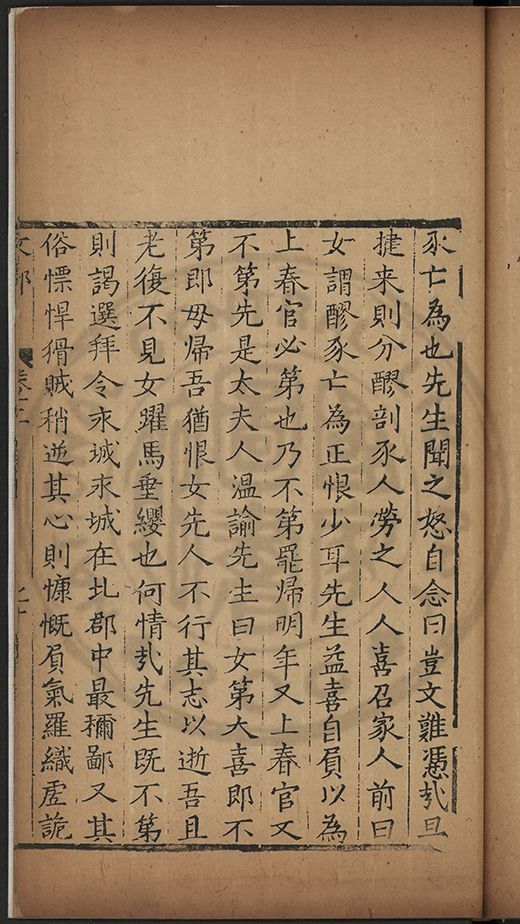 豕亡為也先生聞之怒自念曰豈文難憑㢤旦
捷来則分醪剖豕人勞之人人喜召家人前曰
女謂醪豕亡為正恨少耳先生益喜自負以為
上春官必第也乃不第罷歸明年又上春官又
不第先是太夫人温諭先生曰女第大喜即不
第即毋歸吾猶恨女先人不行其志以逝吾且
老復不見女躍馬垂纓也何情㢤先生既不第
則謁選拜令永城永城在北郡中最穪鄙又其
俗慓悍猾賊稍逆其心則慷慨負氣羅織虗詭